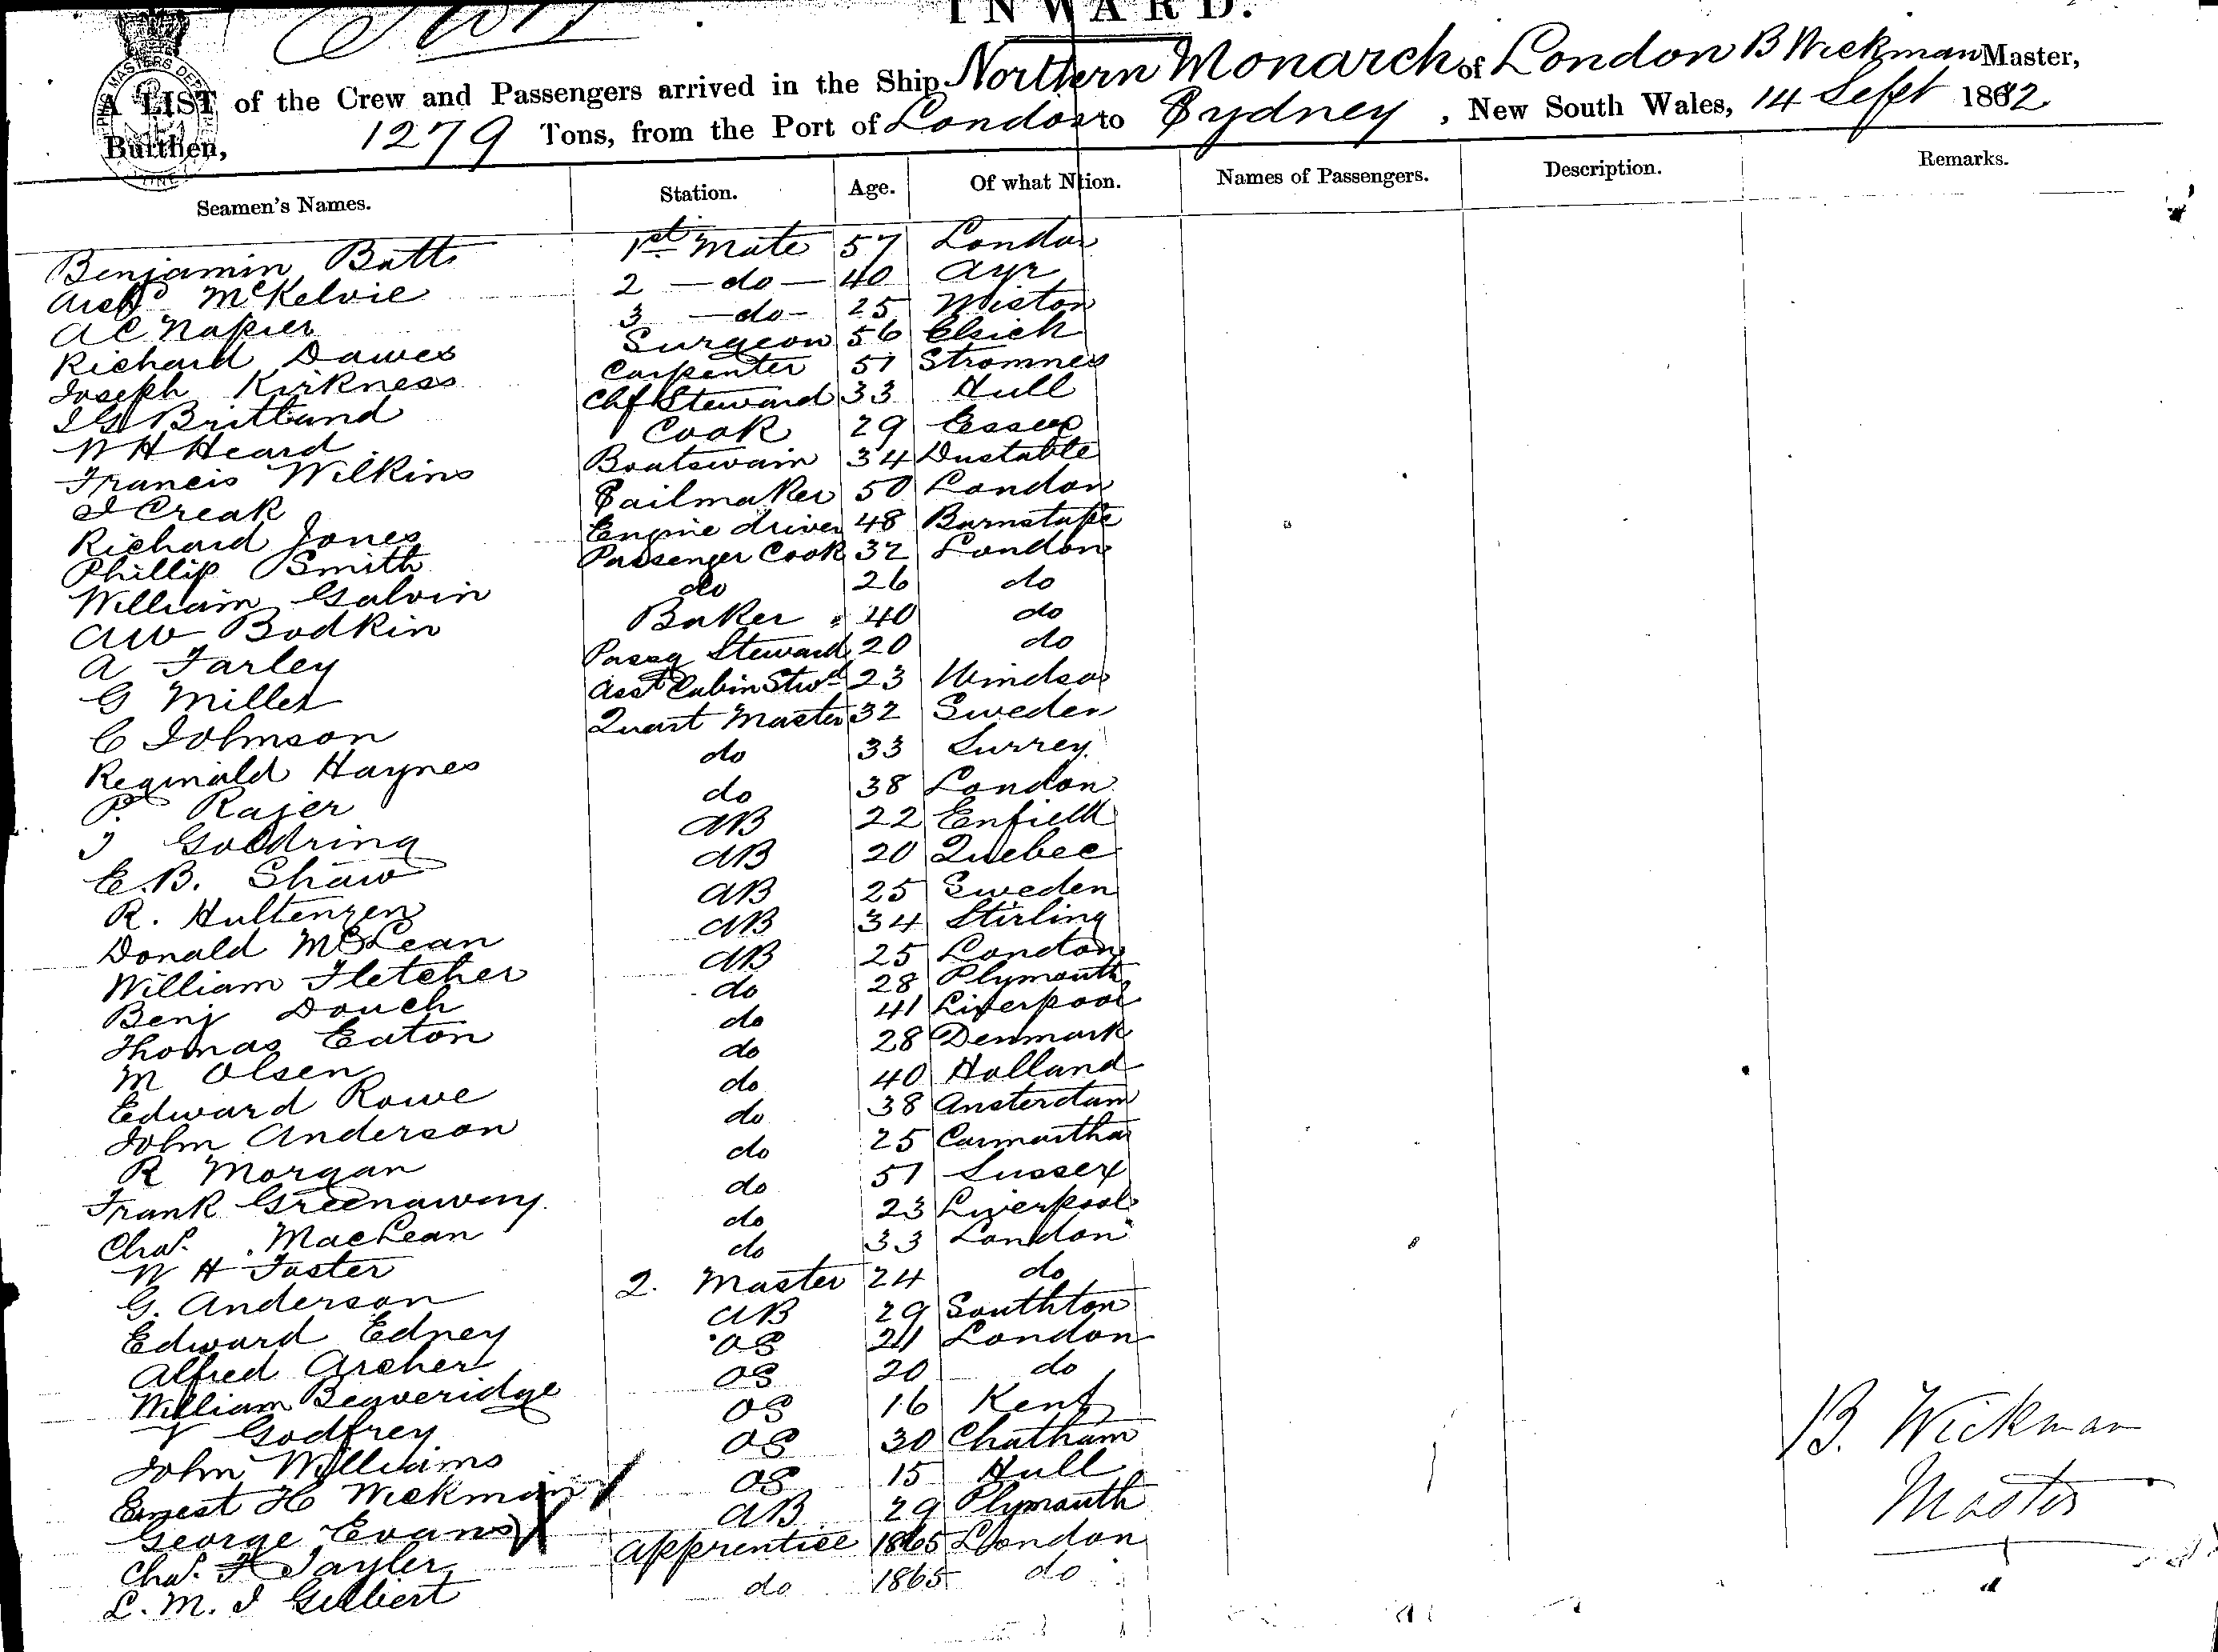 INWARD.
A LIST of the Crew and Passengers arrived in the Ship Northern Monarch of London B Wickman Master,
Burthen, 1279 Tons, from the Port of London to Sydney, New South Wales, 14 Sept 1882
Seamen's Names. Station. Age. Of what Nation. Names of Passengers. Description. Remarks.
Benjamin Batt 1st Mate 57 London
Archd McKelvie 2 — do — 40 Ayr
A C Napier 3 — do - 25 Wiston
Richard Dawes Surgeon 56 Elsich
Joseph Kirkness Carpenter 51 Stromness
J G Britland Chf Steward 33 Hull
W H Heard Cook 29 Essex
Francis Wilkins Boatswain 34 Dustable
J Creak Sailmaker 50 London
Richard Jones Engine driver 48 Barnstaple
Phillip Smith Passenger Cook 32 London
William Galvin do 26 do
A W Bodkin Baker 40 do
A Farley Passg Steward 20 do
G Miller Asst Cabin Stwd 23 Windsor
C Johnson Quart Master 32 Sweden
Reginald Haynes do 33 Surrey
P. Rajer do 38 London
J Goldring AB 22 Enfield
E.B. Shaw AB 20 Quebec
R. Hultenzen AB 25 Sweden
Donald McLean AB 34 Stirling
William Fletcher AB 25 London
Benj Douch do 28 Plymouth
Thomas Eaton do 41 Liverpool
M Olsen do 28 Denmark
Edward Rowe do 40 Holland
John Anderson do 38 Amsterdam
R Morgan do 25 Carmarthen
Frank Greenaway do 51 Sussex
Chas. MacLean do 23 Liverpool
W H Foster do 33 London
G. Anderson 2. Master 24 do
Edward Edney AB 29 Southton
Alfred Archer OS 21 London
William Beaveridge OS 20 do
Godfrey OS 16 Kent
John Williams OS 30 Chatham
Ernest H Wickman OS 15 Hull
George Evans AB 29 Plymouth
Chas. F Tayler Apprentice 1865 London
L. M. J Gilbert do 1865 do
B. Wickman
Master